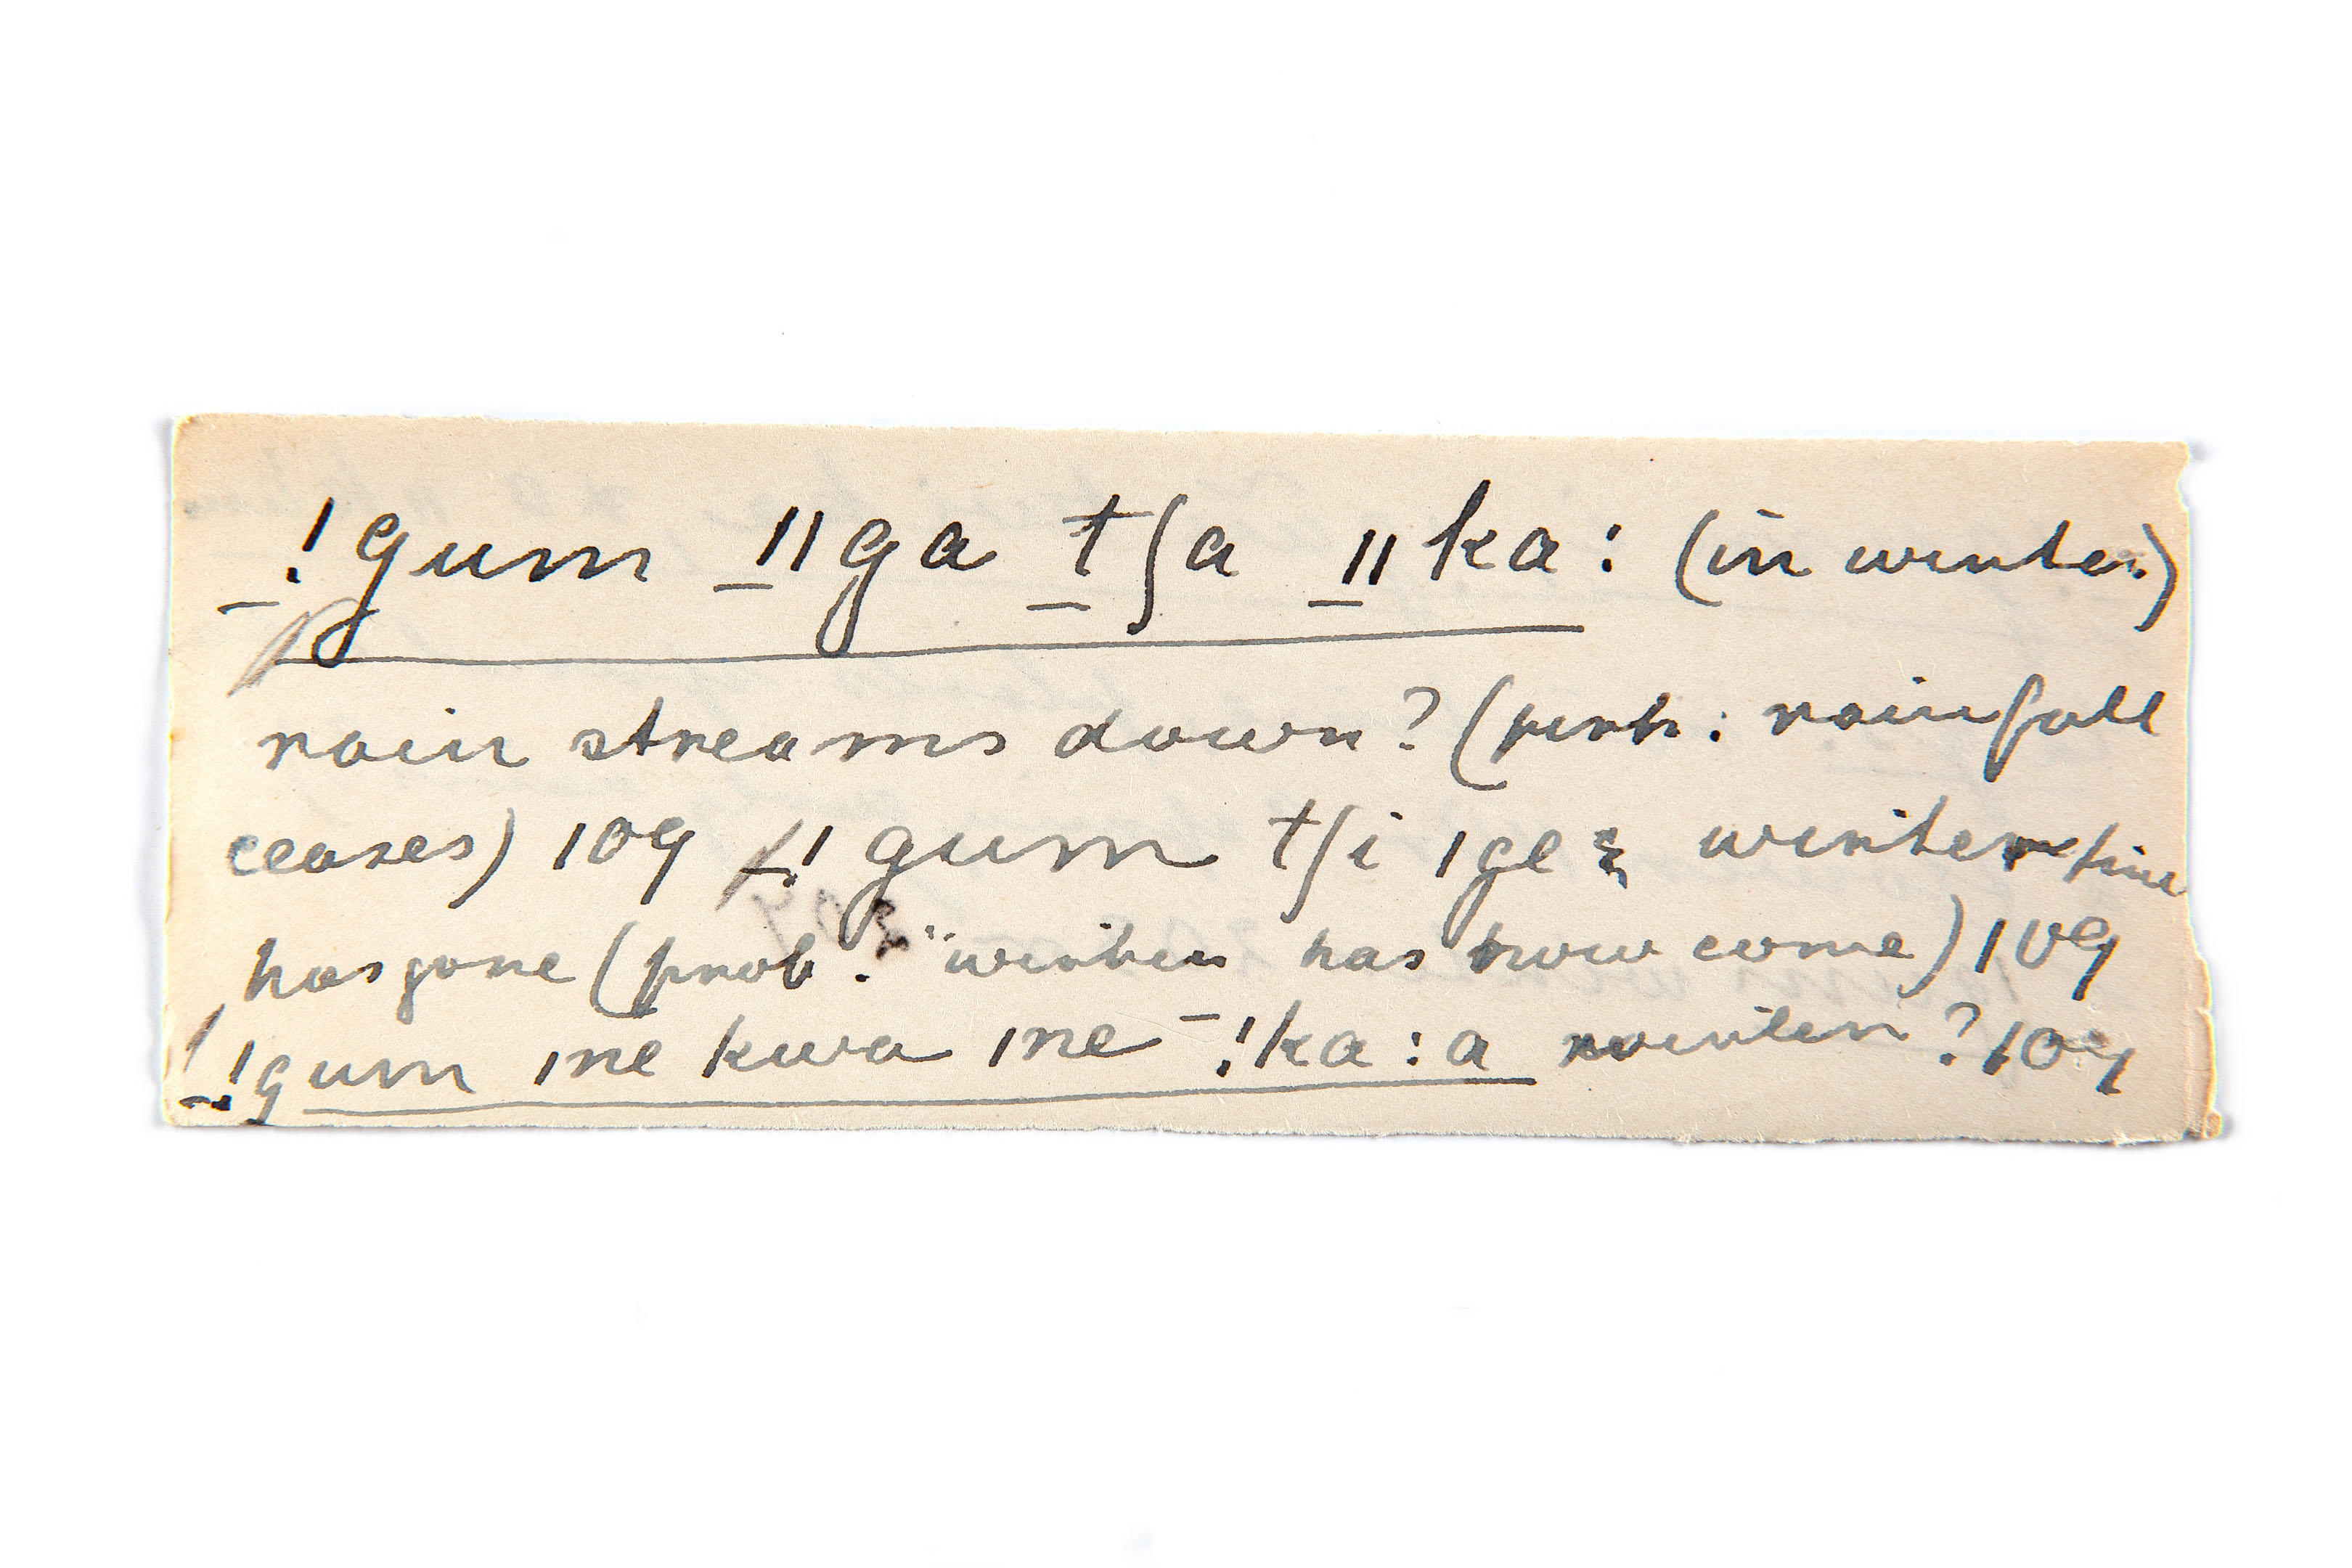 _!gum _ǁga _tʃa _ǁka: (in winter)
rain streams down? (prob: rainfall
ceases) 109 _!gum tʃi ǀge winter time
has gone (prob. "winter has now come) 109
_!gum ǀne kwa ǀne ¯!ka:a winter? 109